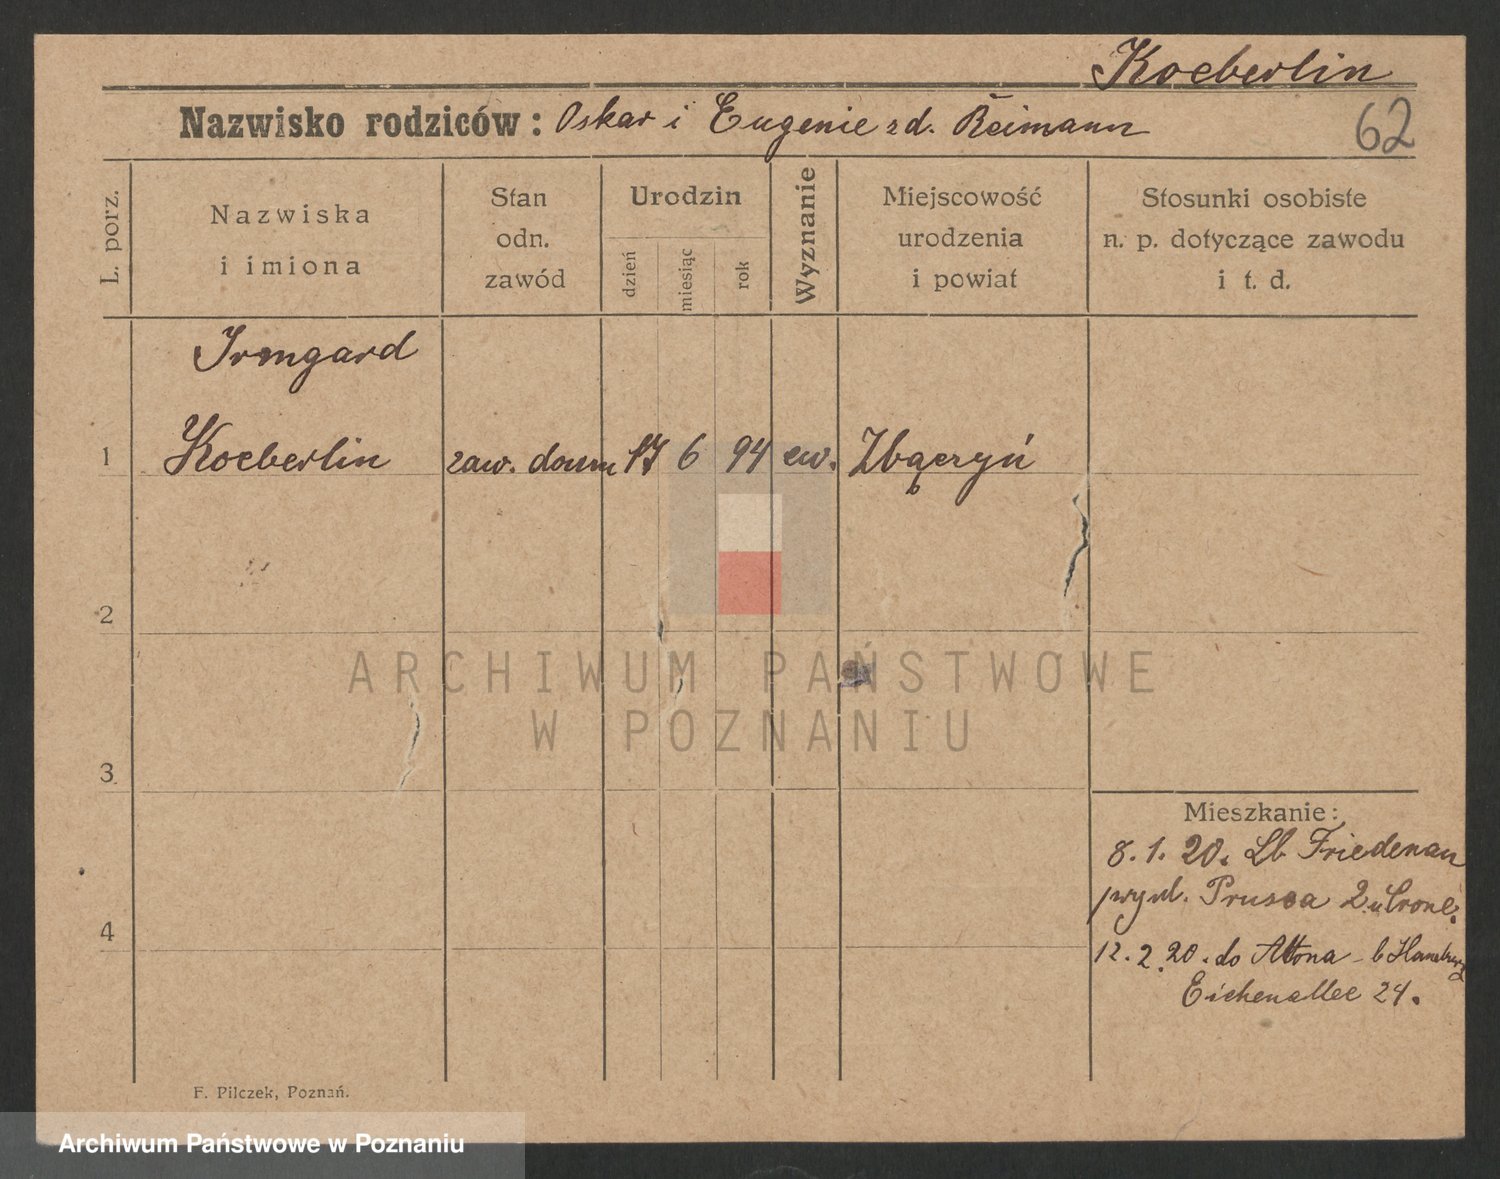 Koeberlin
Nazwisko rodziców: Oskar i Eugenie zd. Reimann
62
L. porz.
Nazwiska
i imiona
Stan
odn.
zawód
Urodzin
dzień
miesiąc
rok
Wyznanie
Miejscowość
urodzenia
i powiat
Stosunki osobiste
n. p. dotyczące zawodu
i t. d.
Irmgard
1 Koeberlin zaw. doum 17 6 94 ew. Zbączyń
2
3
4
Mieszkanie:
8.1.20. Lb Friedenau
Prusca
12.2.20. do Altona - b Hamburg
Eichenallee 24.
F. Pilczek, Poznań.
ARCHIWUM PAŃSTWOWE
W POZNANIU
Archiwum Państwowe w Poznaniu